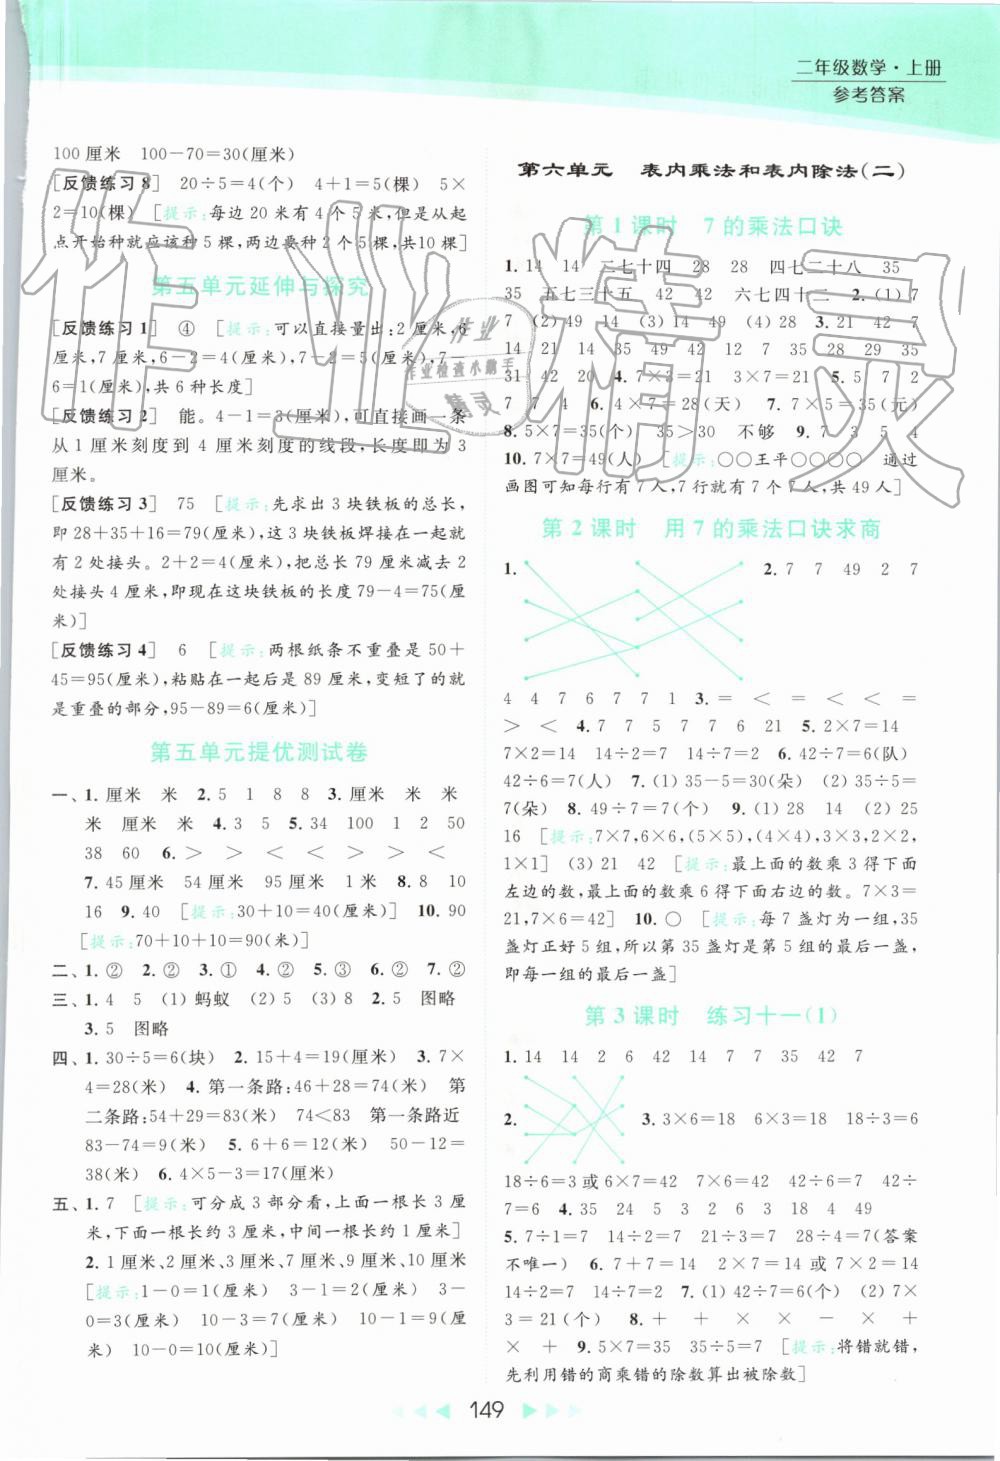 二年级数学·上册
参考答案
100厘米 100-70=30(厘米)
[反馈练习8] 20÷5=4(个) 4+1=5(棵) 5×
2=10(棵) [提示:每边20米有4个5米,但是从起
点开始种就应该种5棵,两边要种2个5棵,共10棵]
第五单元延伸与探究
[反馈练习1] ④ [提示:可以直接量出:2厘米,6
厘米,7厘米,6-2=4(厘米),7-2=5(厘米),7-
6=1(厘米),共6种长度]
[反馈练习2] 能。4-1=3(厘米),可直接画一条
从1厘米刻度到4厘米刻度的线段,长度即为3
厘米。
[反馈练习3] 75 [提示:先求出3块铁板的总长,
即28+35+16=79(厘米),这3块铁板焊接在一起就
有2处接头。2+2=4(厘米),把总长79厘米减去2
处接头4厘米,即现在这块铁板的长度79-4=75(厘
米)]
[反馈练习4] 6 [提示:两根纸条不重叠是50+
45=95(厘米),粘贴在一起后是89厘米,变短了的就
是重叠的部分,95-89=6(厘米)]
第五单元提优测试卷
一、1.厘米 米 2.5 1 8 8 3.厘米 米 米
米 厘米 米 4.3 5 5.34 100 1 2 50
38 60 6.> > < < > <
7.45厘米 54厘米 95厘米 1米 8.8 10
16 9.40 [提示:30+10=40(厘米)] 10.90
[提示:70+10+10=90(米)]
二、1.② 2.② 3.① 4.② 5.③ 6.② 7.②
三、1.4 5 (1)蚂蚁 (2)5 (3)8 2.5 图略
3.5 图略
四、1.30÷5=6(块) 2.15+4=19(米) 3.7×
4=28(米) 4.第一条路:46+28=74(米) 第
二条路:54+29=83(米) 74<83 第一条路近
83-74=9(米) 5.6+6=12(米) 50-12=
38(米) 6.4×5-3=17(厘米)
五、1.7 [提示:可分成3部分看,上面一根长3厘
米,下面一根长约3厘米,中间一根长约1厘米]
2.1厘米、2厘米、3厘米、7厘米、9厘米、10厘米
[提示:1-0=1(厘米) 3-1=2(厘米) 3-
0=3(厘米) 10-3=7(厘米) 10-1=9(厘
米) 10-0=10(厘米)]
第六单元 表内乘法和表内除法(二)
第1课时 7的乘法口诀
1.14 14 二七十四 28 28 四七二十八 35
35 五七三十五 42 42 六七四十二 2.(1)7
7 (2)49 14 (3)14 49 (4)28 3.21 42 7
14 21 14 35 49 42 12 7 28 29 35
31 42 20 4.7×3=21 3×7=21 5.5 7 2
7 7 4 6.4×7=28(天) 7.7×5=35(元)
8.5×7=35(个) 35>30 不够 9.7 3 5 4
10.7×7=49(人) [提示:○○王平○○○○ 通过
画图可知每行有7人,7行就有7个7人,共49人]
第2课时 用7的乘法口诀求商
1. 2.7 7 49 2 7
4 4 7 6 7 7 1 3.= < = < < =
> < 4.7 7 5 7 7 6 21 5.2×7=14
7×2=14 14÷2=7 14÷7=2 6.42÷7=6(队)
42÷6=7(人) 7.(1)35-5=30(朵) (2)35÷5=
7(朵) 8.49÷7=7(个) 9.(1)28 14 (2)25
16 [提示:7×7,6×6,(5×5),(4×4),3×3,2×2,
1×1] (3)21 42 [提示:最上面的数乘3得下面
左边的数,最上面的数乘6得下面右边的数。7×3=
21,7×6=42] 10.○ [提示:每7盏灯为一组,35
盏灯正好5组,所以第35盏灯是第5组的最后一盏,
即每一组的最后一盏]
第3课时 练习十一(1)
1.14 14 2 6 42 14 7 7 35 42 7
2. 3.3×6=18 6×3=18 18÷3=6
18÷6=3或6×7=42 7×6=42 42÷6=7 42÷
7=6 4.35 24 5 3 2 6 3 18 4 49
5.7÷1=7 14÷2=7 21÷3=7 42÷6=7(答案
不唯一) 6.7+7=14 2×7=14或7×2=14
14÷2=7 14÷7=2 7.(1)42÷6=7(个) (2)7×
3=21(个) 8.+ + × × - × +
× + 9.5×7=35 35÷5=7 [提示:将错就错,
先利用错的商乘错的除数算出被除数]
149
作业精灵
作业
作业检查小助手
精灵